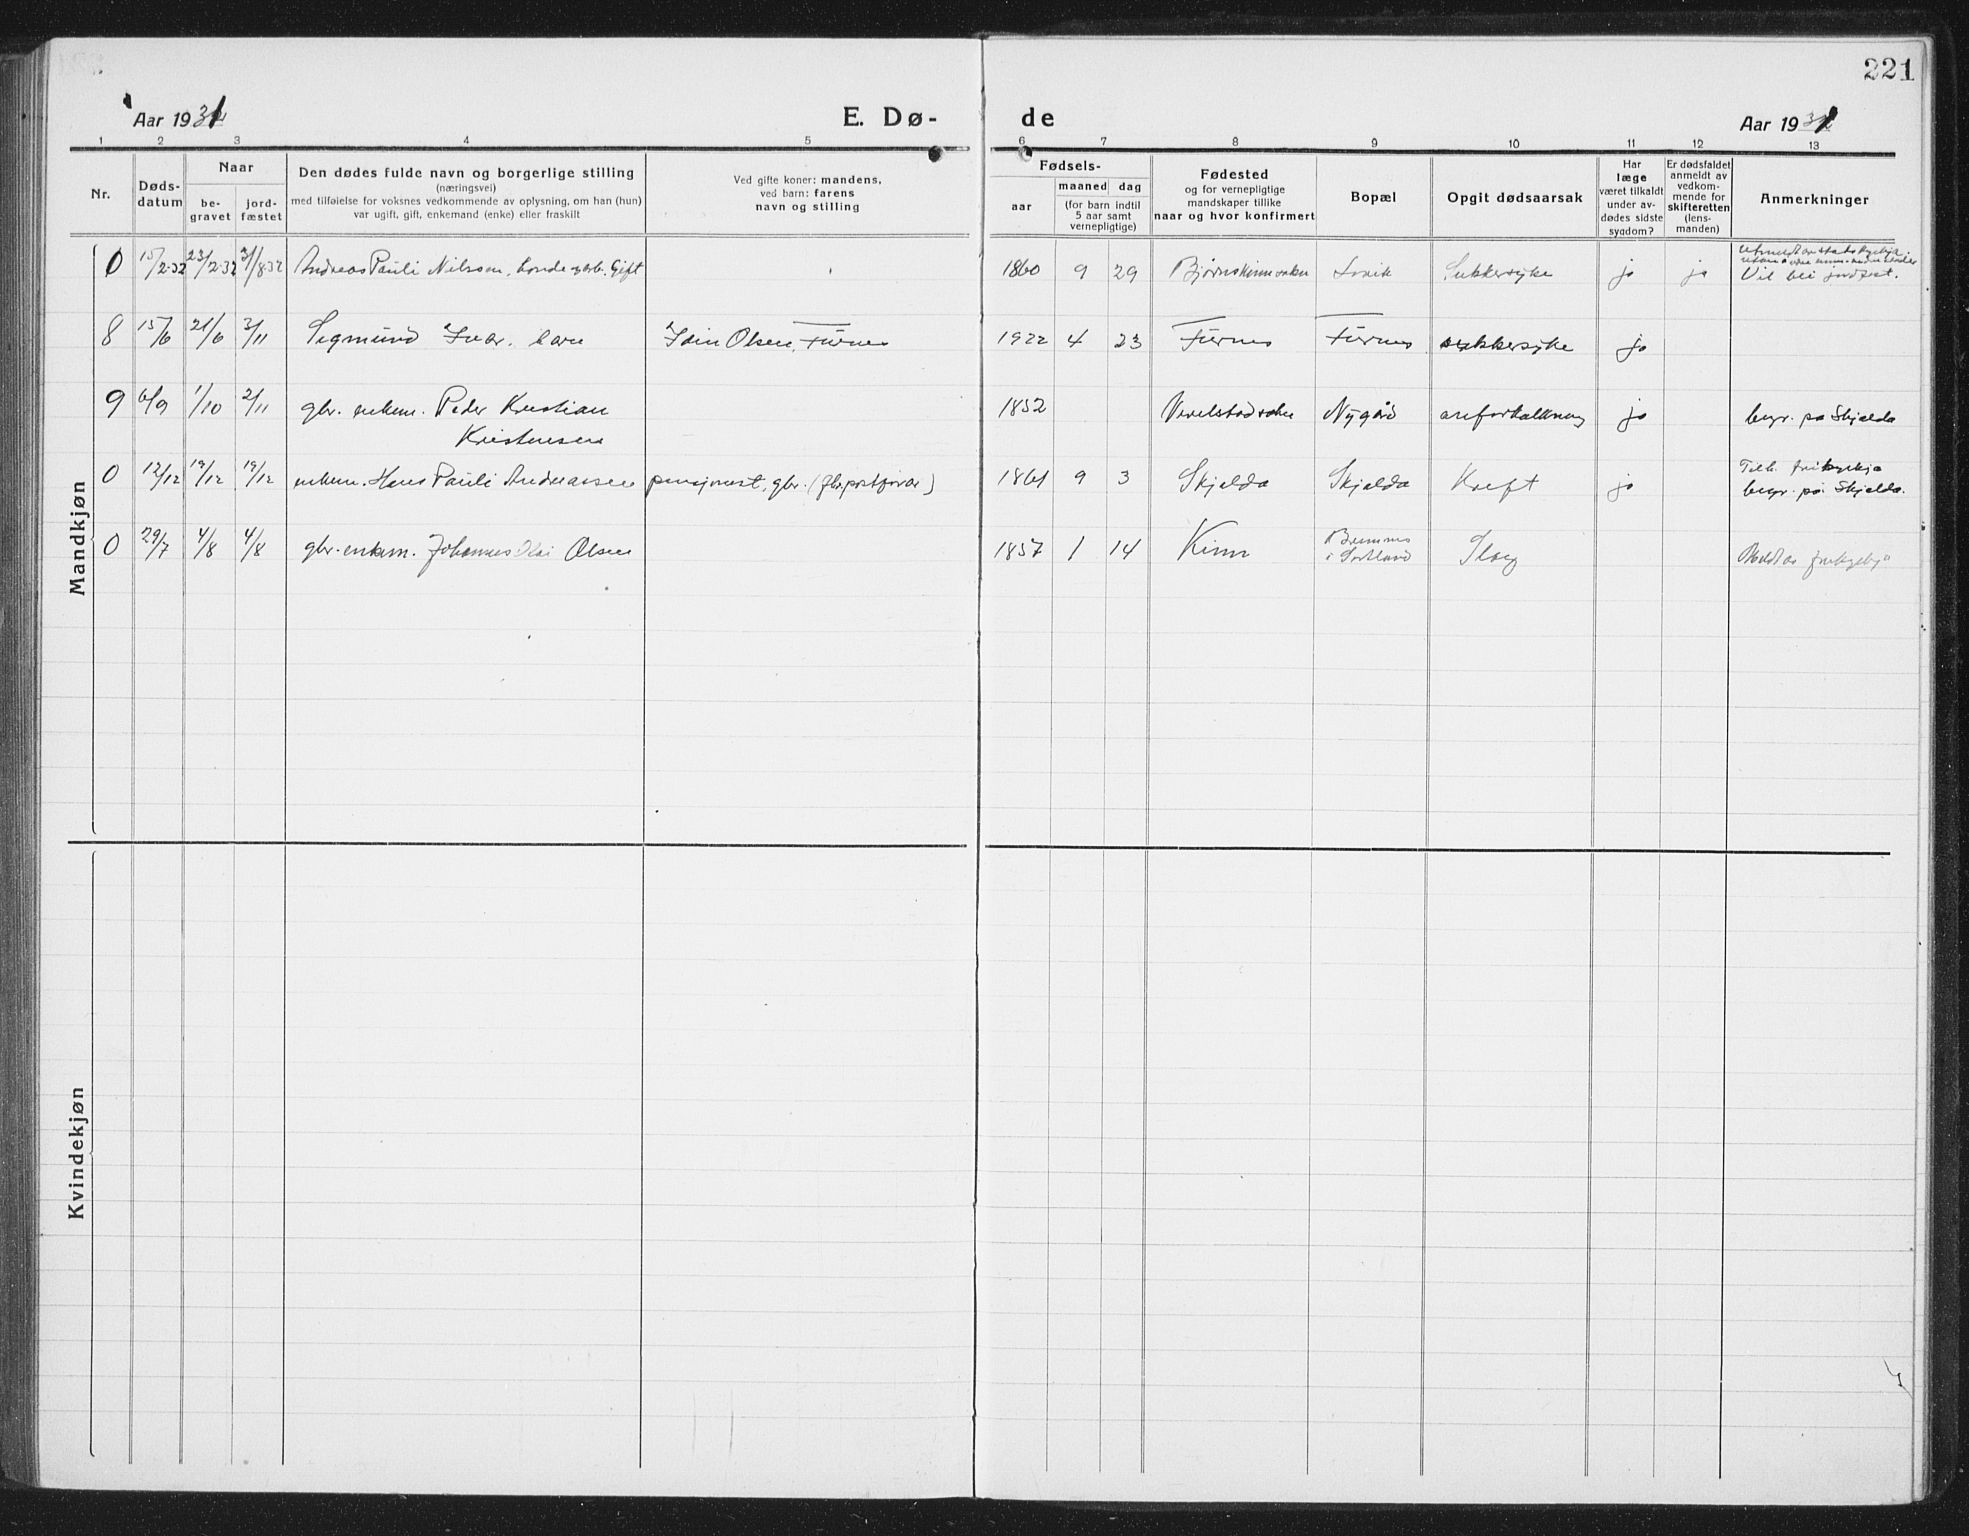 221
Aar 1931
E. Dø-
de
Aar 1931
1 2 3 4 5 6 7 8 9 10 11 12 13
Nr.
Døds-
datum
Naar
be-
gravet
jord-
fæstet
Den dødes fulde navn og borgerlige stilling
(næringsvei)
med tilføielse for voksnes vedkommende av oplysning, om han (hun)
var ugift, gift, enkemand (enke) eller fraskilt
Ved gifte koner: mandens,
ved barn: farens
navn og stilling
Fødsels-
aar
maaned dag
(for barn indtil
5 aar samt
vernepligtige)
Fødested
og for vernepligtige
mandskaper tillike
naar og hvor konfirmert
Bopæl
Opgit dødsaarsak
Har
læge
været tilkaldt
under av-
dødes sidste
sygdom?
Er dødsfaldet
anmeldt av
vedkom-
mende for
skifteretten
(lens-
manden)
Anmerkninger
Mandkjøn
0 15/2-32 23/2-32 31/8-32 Andreas Pauli Nilssen, Gift 1860 9 29 Sukkersyke ja ja
Vil bli jordfest.
8 15/6 21/6 3/11 Sigmund Ivar, barn Idin Olsen, Furnes 1922 4 23 Furnes Furnes sukkersyke ja
9 6/9 1/10 2/11 gbr. enkem. Peder Kristian 1852 Nygård areforkalkning ja begr. på Skjelda
Kristensen
0 12/12 19/12 19/12 enkem. Hans Pauli Andreassen pensjonist, gbr. (fhv. postfører) 1861 9 3 Skjelda Skjelda Kreft ja Tilh. frikyrkja
begr. på Skjelda.
0 29/7 4/8 4/8 gbr. enkem. Johannes Olai Olsen 1857 1 14 Kinn
i Sortland Slag
Kvindekjøn